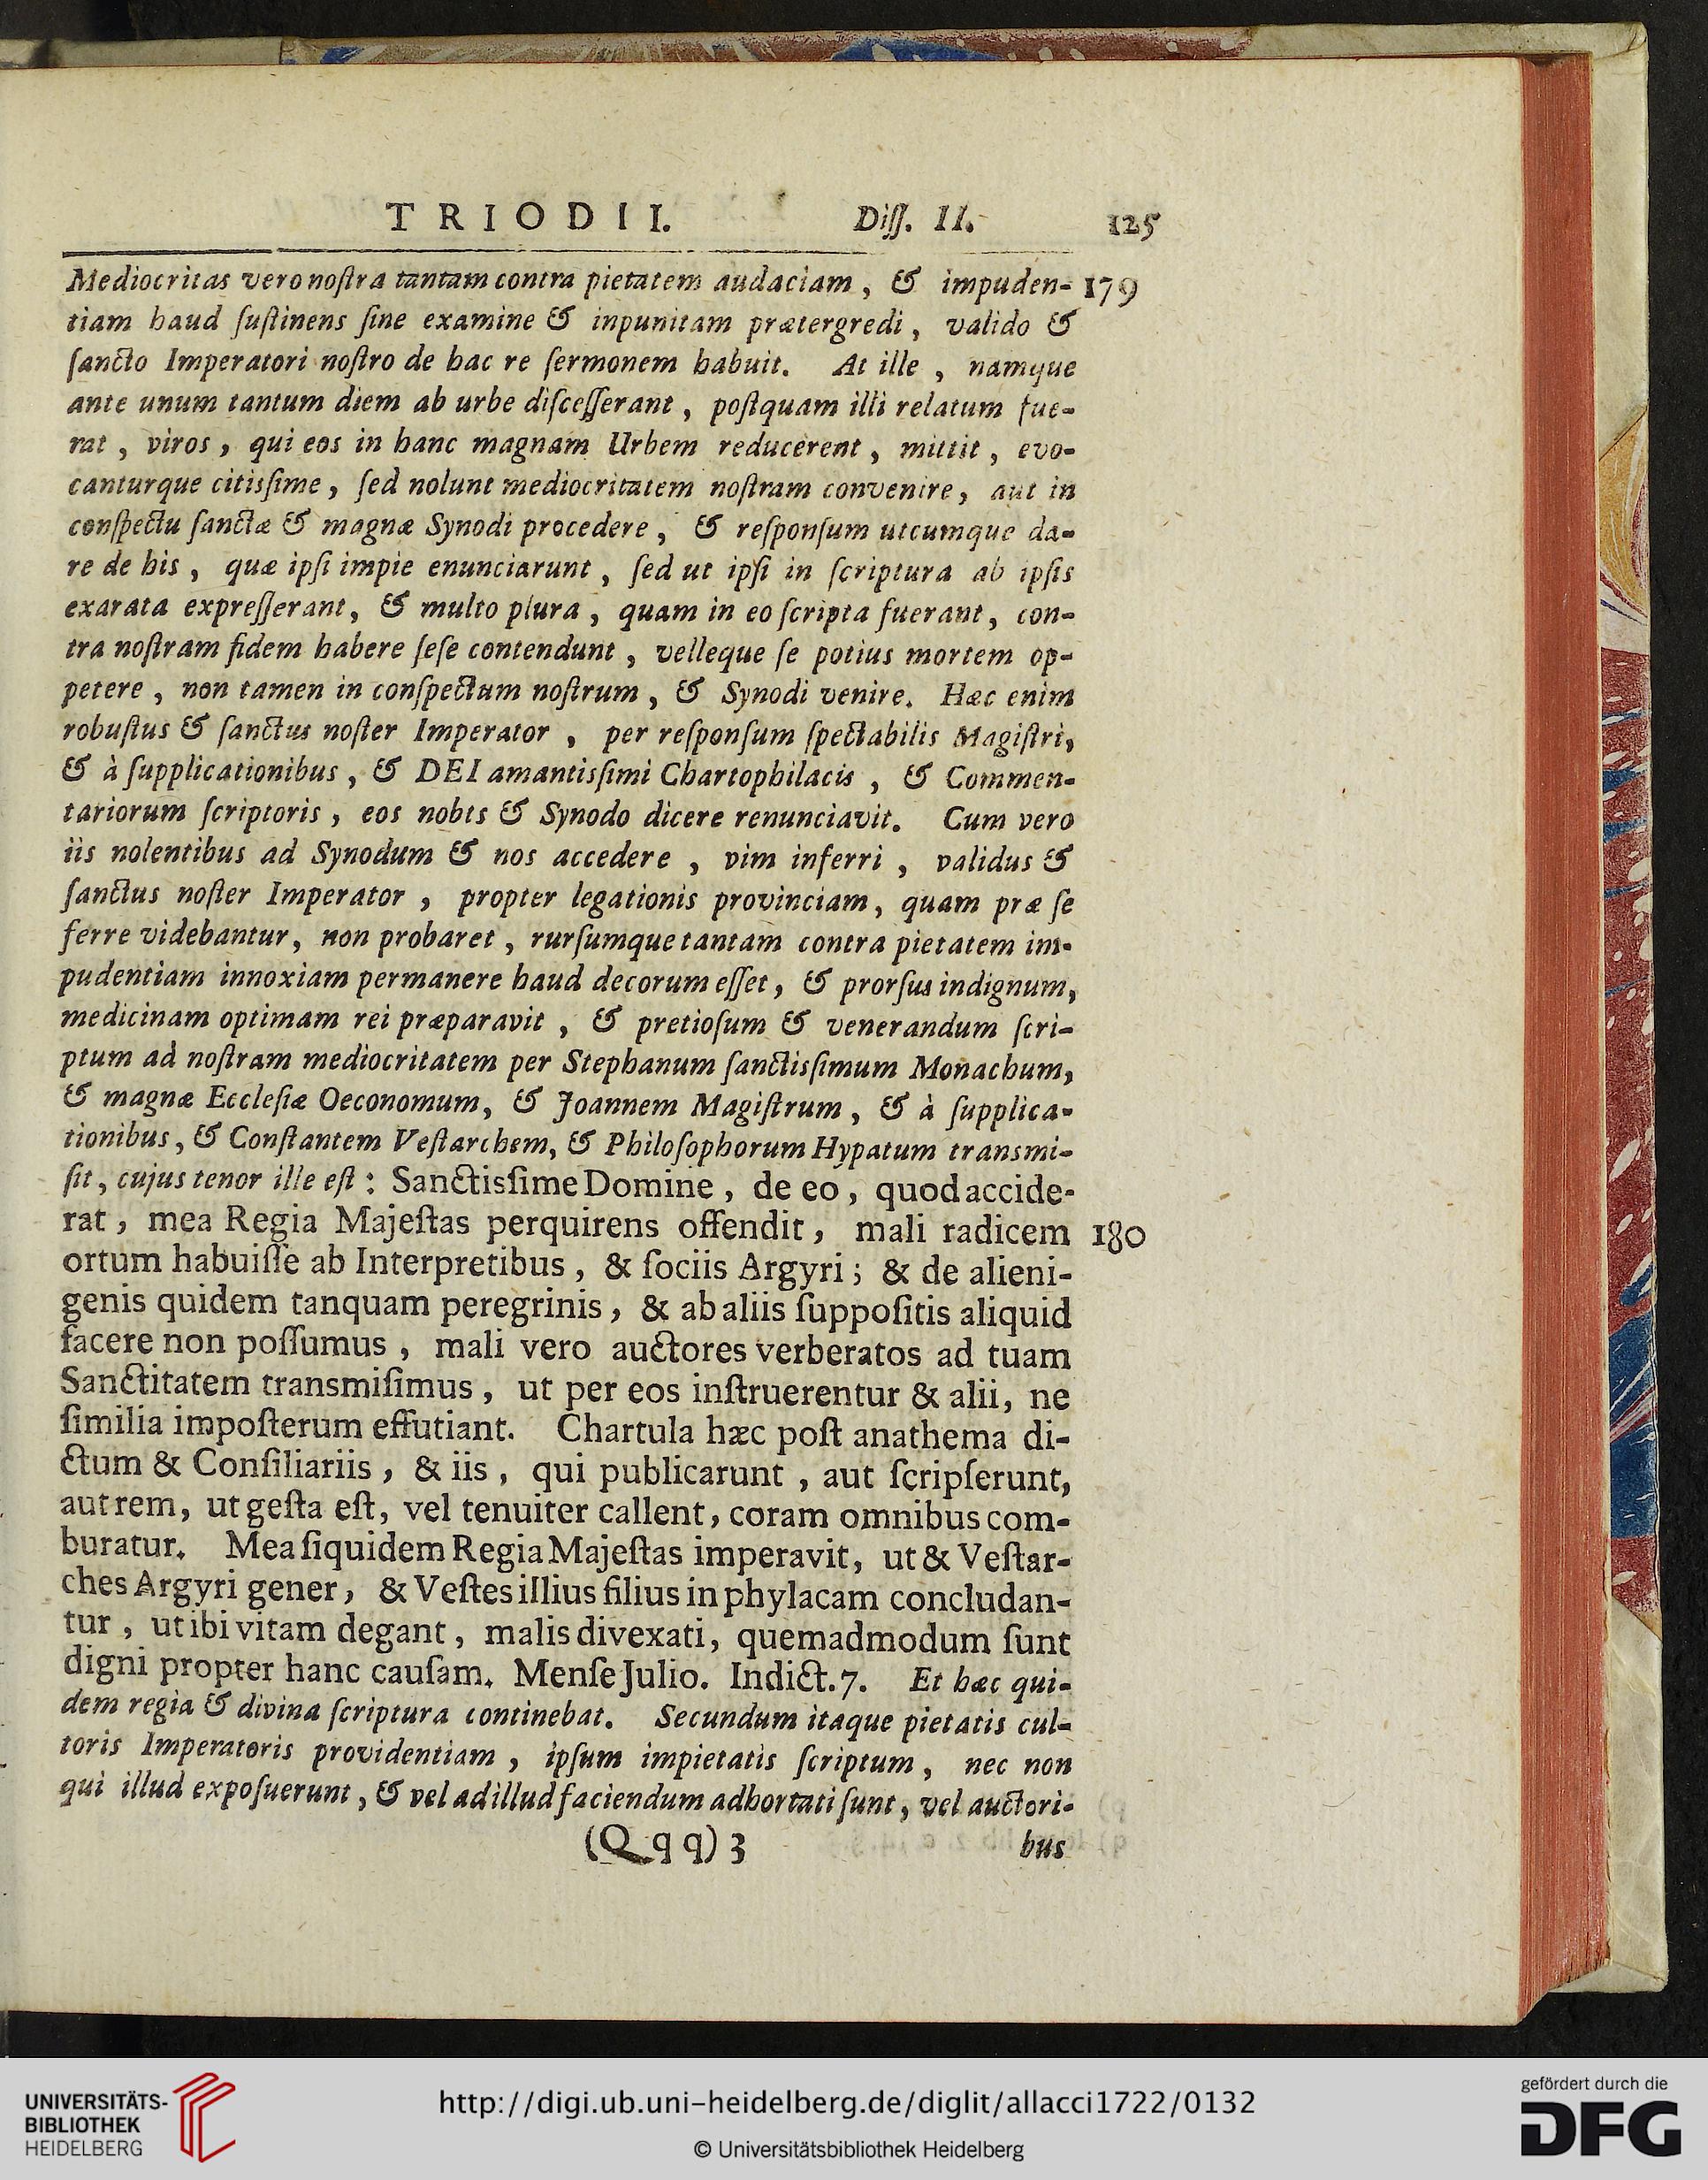 TRIODII. Diſſ. II. 125
Mediocritas vero noſtra tantam contra pietatem audaciam, & impuden- 179
tiam haud ſuſtinens ſine examine & inpunitam prætergredi, valido &
ſancto Imperatori noſtro de hac re ſermonem habuit. At ille, namque
ante unum tantum diem ab urbe diſceſſerant, poſtquam illi relatum fue-
rat, viros, qui eos in hanc magnam Urbem reducerent, mittit, evo-
canturque citiſsime, ſed nolunt mediocritatem noſtram convenire, aut in
conſpectu ſanctæ & magnæ Synodi procedere, & reſponſum utcumque da-
re de his, quæ ipſi impie enunciarunt, ſed ut ipſi in ſcriptura ab ipſis
exarata expreſſerant, & multo plura, quam in eo ſcripta fuerant, con-
tra noſtram fidem habere ſeſe contendunt, velleque ſe potius mortem op-
petere, non tamen in conſpectum noſtrum, & Synodi venire. Hæc enim
robuſtus & ſanctus noſter Imperator, per reſponſum ſpectabilis Magiſtri,
& à ſupplicationibus, & DEI amantisſimi Chartophilacis, & Commen-
tariorum ſcriptoris, eos nobis & Synodo dicere renunciavit. Cum vero
iis nolentibus ad Synodum & nos accedere, vim inferri, validus &
ſanctus noſter Imperator, propter legationis provinciam, quam præ ſe
ferre videbantur, non probaret, rurſumque tantam contra pietatem im-
pudentiam innoxiam permanere haud decorum eſſet, & prorſus indignum,
medicinam optimam rei præparavit, & pretioſum & venerandum ſcri-
ptum ad noſtram mediocritatem per Stephanum ſanctisſimum Monachum,
& magnæ Eccleſiæ Oeconomum, & Joannem Magiſtrum, & à ſupplica-
tionibus, & Conſtantem Veſtarchem, & Philoſophorum Hypatum transmi-
ſit, cujus tenor ille eſt: Sanctisſime Domine, de eo, quod accide-
rat, mea Regia Majeſtas perquirens offendit, mali radicem 180
ortum habuiſſe ab Interpretibus, & ſociis Argyri; & de alieni-
genis quidem tanquam peregrinis, & ab aliis ſuppoſitis aliquid
facere non poſſumus, mali vero auctores verberatos ad tuam
Sanctitatem transmiſimus, ut per eos inſtruerentur & alii, ne
ſimilia impoſterum effutiant. Chartula hæc poſt anathema di-
ctum & Conſiliariis, & iis, qui publicarunt, aut ſcripſerunt,
aut rem, ut geſta eſt, vel tenuiter callent, coram omnibus com-
buratur. Mea ſiquidem Regia Majeſtas imperavit, ut & Veſtar-
ches Argyri gener, & Veſtes illius filius in phylacam concludan-
tur, ut ibi vitam degant, malis divexati, quemadmodum ſunt
digni propter hanc cauſam. Menſe Julio. Indict. 7. Et hæc qui-
dem regia & divina ſcriptura continebat. Secundum itaque pietatis cul-
toris Imperatoris providentiam, ipſum impietatis ſcriptum, nec non
qui illud expoſuerunt, & vel ad illud faciendum adhortati ſunt, vel auctori-
(Qqq) 3 bus
UNIVERSITÄTS-
BIBLIOTHEK
HEIDELBERG
http://digi.ub.uni-heidelberg.de/diglit/allacci1722/0132
© Universitätsbibliothek Heidelberg
gefördert durch die
DFG